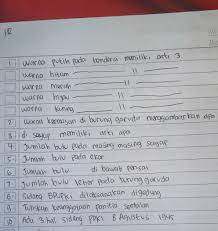 1. warna putih pada bendera memiliki arti 3
warna hitam — 11 —
warna merah — 11 —
warna hijau — 11 —
warna kuning — 11 —
2 warna keemasan di burung garuda menggambarkan apa
3 di sayap memiliki arti apa
4 Jumlah bulu pada masing masing sayap
5 Jumlah bulu pada ekor
6 Jumlah bulu di bawah
7 Jumlah bulu leher pada burung garuda
8 Sidang BPUPKI dilaksanakan digedung
9 Tuliskan keanggotaan panitia sembilan
10 Ada 3 hal sidang PPKI 8 Agustus 1945